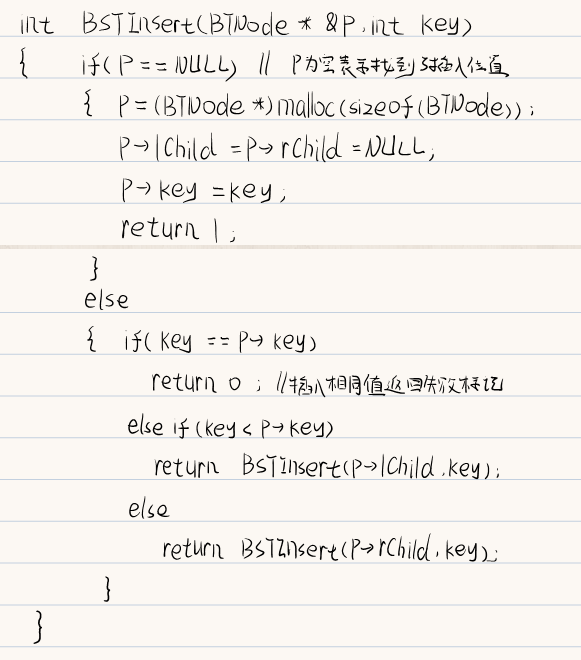 int BSTInsert(BTNode * &P, int key)
{ if( P == NULL) // P为空表示找到了插入位置
{ P = (BTNode *)malloc(sizeof(BTNode));
P→lChild = P→rChild = NULL;
P→key = key;
return 1;
}
else
{ if( key == P→ key)
return 0; //插入相同值返回失败标记
else if (key < P→key)
return BSTInsert(P→lChild, key);
else
return BSTInsert(P→rChild, key);
}
}